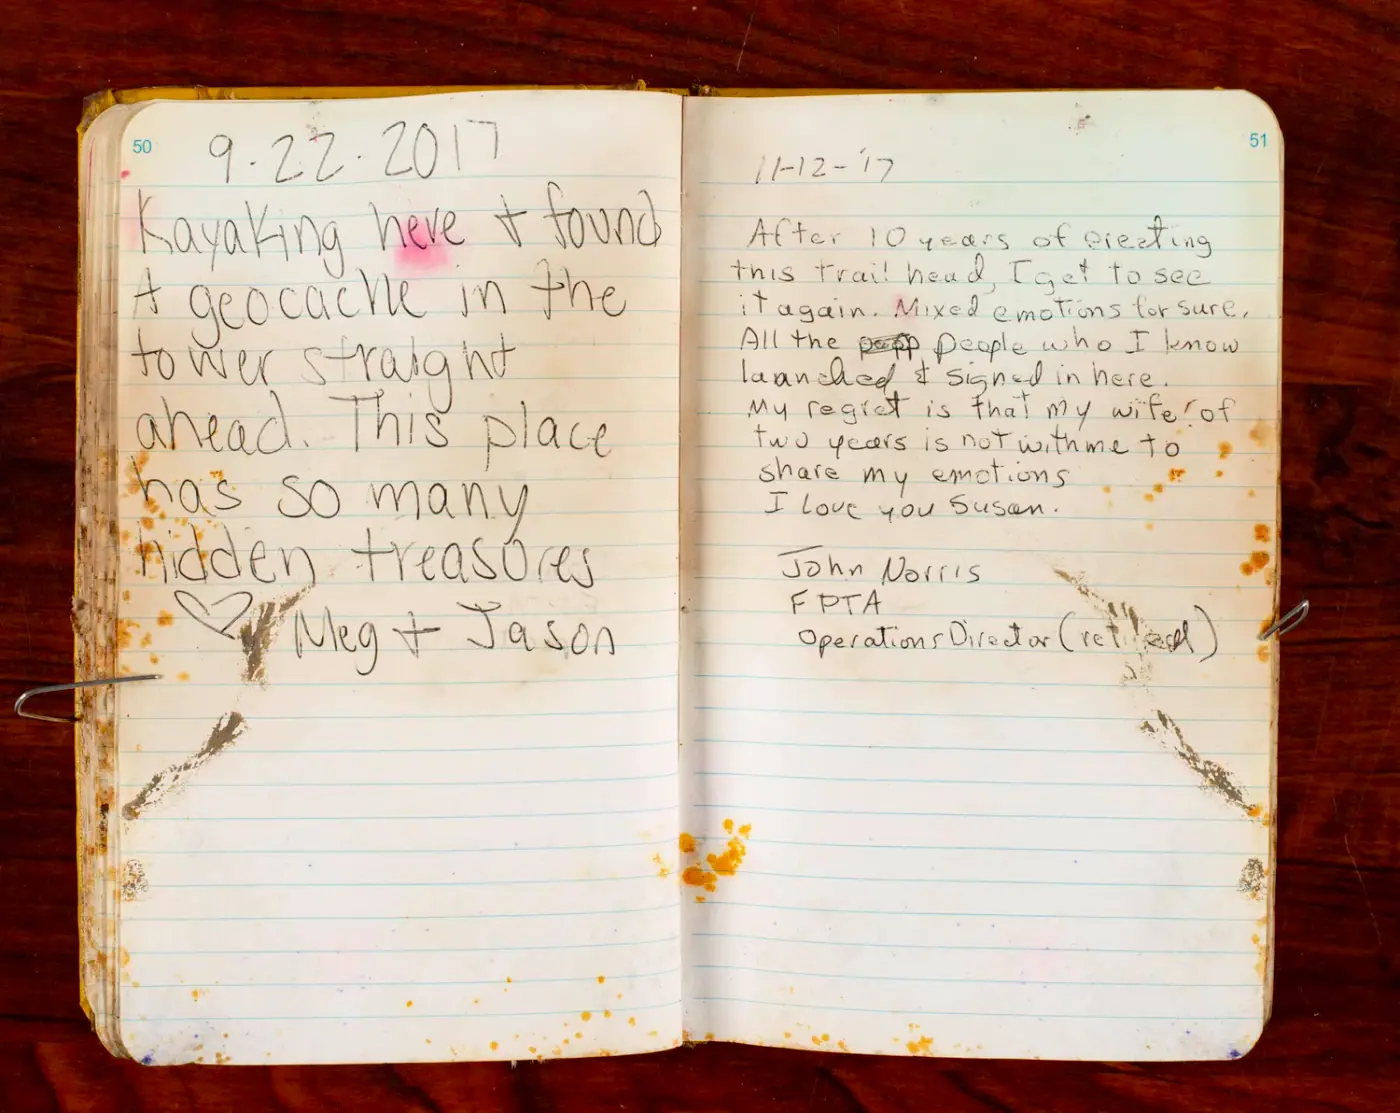 50
9.22.2017
Kayaking here + found
A geocache in the
tower straight
ahead. This place
has so many
hidden treasures
♡ Meg + Jason
51
11-12-'17
After 10 years of erecting
this trail head, I get to see
it again. Mixed emotions for sure.
All the people who I know
launched & signed in here.
My regret is that my wife of
two years is not with me to
share my emotions
I love you Susan.
John Norris
FPTA
Operations Director (retired)